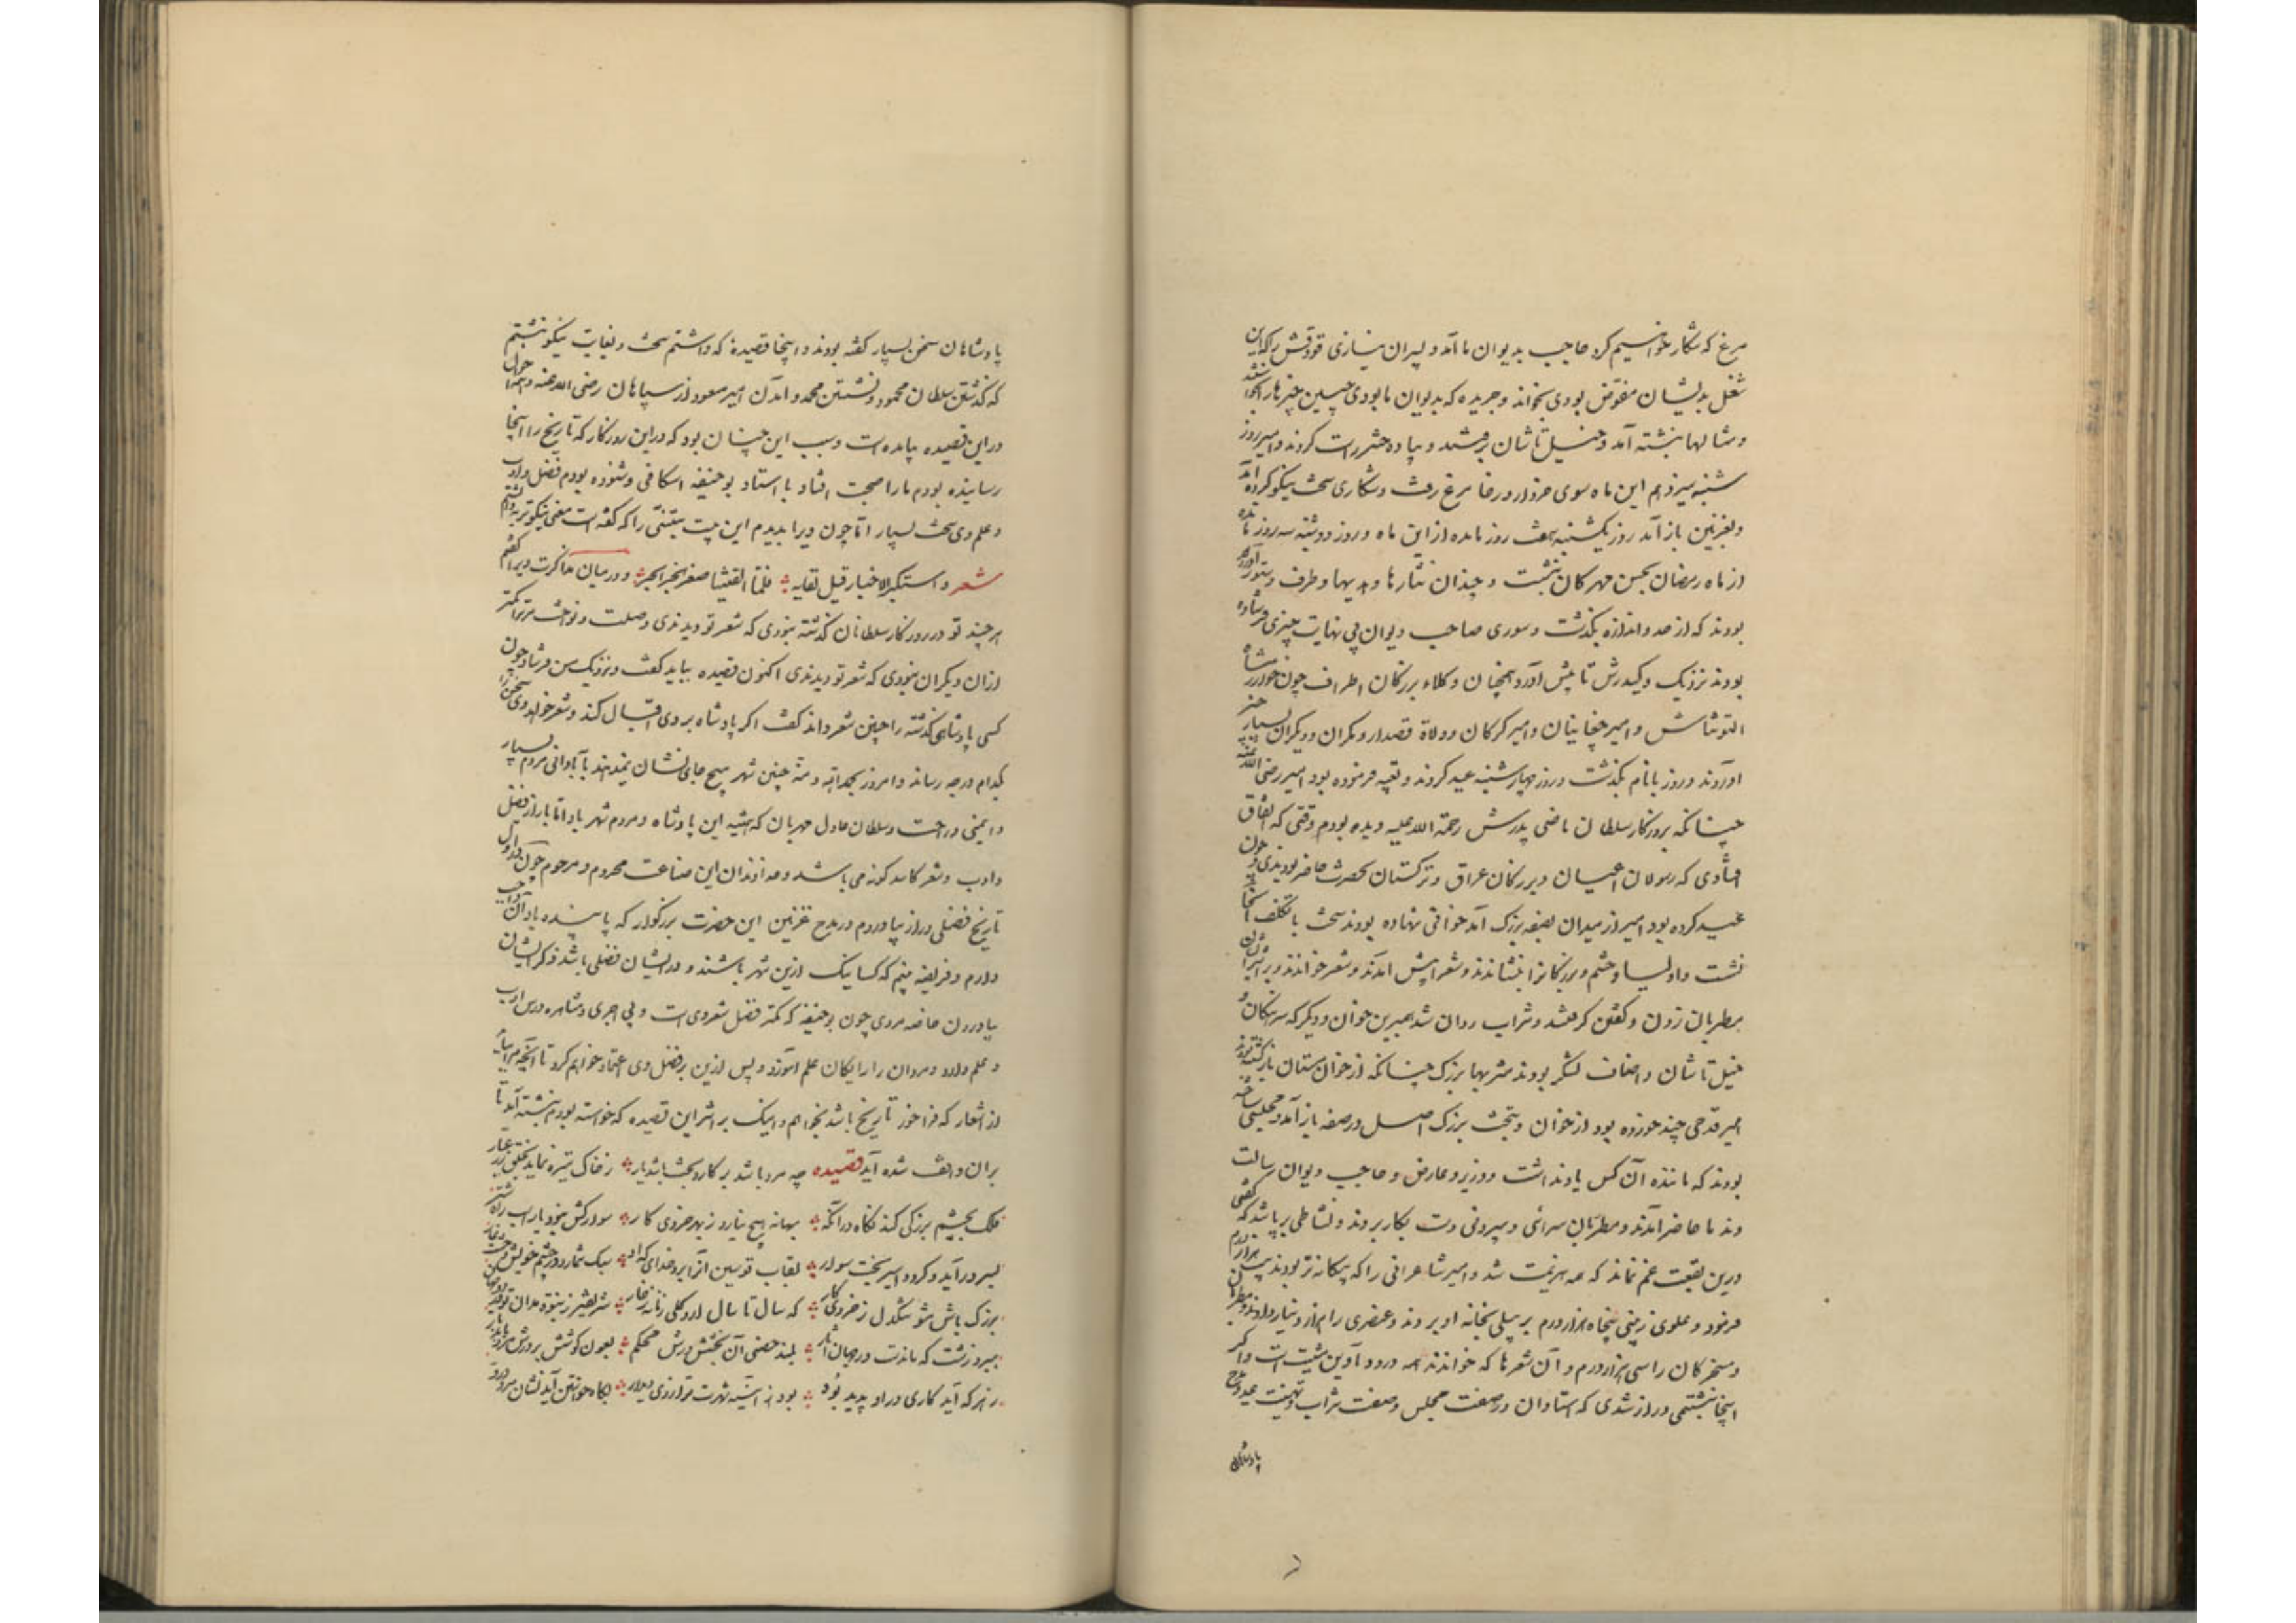 مرغ که شکار خواهیم کرد حاجب بدیوان ما آمد و پسران نیازی قودقش را که این
شغل بدیشان مفوض بودی بخواند و جریده که بدیوان ما بودی چنین چیزها را بخواستند
و مثالها نبشته آمد و خیلتاشان برفتند و پیاده حشر راست کردند و امیر روز
شنبه سیزدهم این ماه سوی خروار و رخا مرغ رفت و شکاری سخت نیکو کرده آمد
و بغزنین باز آمد روز یکشنبه هفت روز مانده از این ماه و روز دوشنبه سه روز مانده
از ماه رمضان بجشن مهرکان بنشست و چندان نثارها و هدیها و طرف و ستور آورده
بودند که از حد و اندازه بگذشت و سوری صاحب دیوان بی نهایت چیزی فرستاده
بودند نزدیک وکیل درش تا پیش آورد همچنان وکلاء بزرکان اطراف چون خوارزمشاه
التونتاش و امیر چغانیان و امیر کرکان و ولاة قصدار و مکران و دیکران بسیار چیز
آوردند و روز بانام بگذشت و روز چهارشنبه عید کردند و تعبیه فرموده بود امیر رضی الله عنه
چنانکه بروزکار سلطان ماضی پدرش رحمة الله علیه دیده بودم وقتی که اتفاق
افتادی که رسولان اعیان و بزرکان عراق و ترکستان بحضرت حاضر بودندی و چون
عید کرده بود امیر از میدان بصفه بزرک آمد خوانی نهاده بودند سخت با تکلف آنجا
نشست و اولیا و حشم و بزرکانرا بنشاندند و شعرا پیش آمدند و شعر خواندند و بر اثر ایشان
مطربان زدن و گفتن کرفتند و شراب روان شد همبرین خوان و دیکر که سرهنکان و
خیلتاشان و اصناف لشکر بودند مشربها بزرک چنانکه از خوان مستان باز کشتند
امیر قدحی چند خورده بود از خوان و بتخت بزرک اصل در صفه باز آمد و مجلسی ساخته
بودند که ماننده آن کس یاد نداشت و وزیر و عارض و صاحب دیوان رسالت
و ندما حاضر آمدند و مطربان سرائی و بیرونی دست بکار بردند و نشاطی بر پا شد که گفتی
درین بقعت غم نماند که همه هزیمت شد و امیر شاعرانی را که بیکانه تر بودند بیست هزار درم
فرمود و علوی زینبی پنجاه هزار درم بر پیلی بخانه او بردند و عنصری را هزار دینار دادند و مطربان
و مسخرکان را سی هزار درم و آن شعرها که خواندند همه در دواوین مثبت است و اکر
اینجا نبشتمی دراز شدی که استادان در صفت مجلس و صفت شراب و تهنیت عید و مدح
پادشاهان
پادشاهان سخن بسیار کفته بودند و اینجا قصیده که داشتم سخت و بغایت نیکو نبشتم
که گذشتن سلطان محمود و نشستن محمد و آمدن امیر مسعود از سپاهان رضی الله عنه و همه احوال
در این قصیده بیامده است و سبب این چنان بود که در این روزکار که تاریخ را اینجا
رسانیده بودم ما را صحبت افتاد با استاد بوحنیفه اسکافی و شنوده بودم فضل و ادب
و علم وی سخت بسیار اما چون ویرا بدیدم این بیت متنبی را که کفته است معنی نیکوتر بدانستم
شعر و استکبر الاخبار قبل لقایه فلما التقینا صغر الخبر الخبر و در میان مذاکرت ویرا کفتم
هر چند تو در روزکار سلطانان گذشته نبودی که شعر تو دیدندی و صلت و نواخت مر ترا کمتر
از آن دیکران نبودی که شعر تو دیدندی اکنون قصیده بباید گفت و نزدیک من فرستاد چون
کسی پادشاهی گذشته را چنین شعر داند گفت اکر پادشاه بر وی اقبال کند و شعر خواهد وی سخن را
بکدام درجه رساند و امروز بحمد الله و منه چنین شهر هیچ جای نشان نمیدهند بآبادانی مردم بسیار
و ایمنی و راحت و سلطان عادل مهربان که همیشه این پادشاه و مردم شهر باد اما بازار فضل
و ادب و شعر کاسد گونه می باشد و خداوندان این صناعت محروم و مرحوم چون در اول
تاریخ فصلی دراز بیاوردم در مدح غزنین این حضرت بزرکوار که پاینده باد آن واجب
دارم و فریضه بینم که کسانیک ازین شهر باشند و در ایشان فضلی باشد ذکر ایشان
بیاوردن خاصه مردی چون بوحنیفه که کمتر فضل شعر وی است و بی اجری و مشاهره درس ادب
و علم دارد و مردان را رایکان علم آموزد و پس ازین بر فضل وی اعتماد خواهم کرد تا آنچه مرا بباید
از اشعار که فراخور تاریخ باشد بخواهم و اینک بر اثر این قصیده که خواسته بودم نبشته آید تا
بران واقف شده آید قصیده چو مرد باشد بر کار و بخت باشد یار ز خاک تیره نماید بخلق زر عیار
فلک بچشم بزرگی کند نکاه در آنکه بهانه هیچ نیارد ز بهر خردی کار سوار کش نبود یار اسب راه
بسر در آید و کردد اسیر بخت سوار بقاب قوسین آنرا برد خدای که او سبک شمارد در چشم خویش
بزرک باش مشو تنکدل ز خردی کار که سال تا سال آرد کلی زمانه ز خار
ببرد زشت که ماند در جهان آثار بلند حصنی دان بخشش درش محکم بعون کوشش بر درش مرد
ز هر که آید کاری در او پدید بود بود ز آئینه شهرت قرار روی دیدار بکاه خواستن آید نشان مرد درو